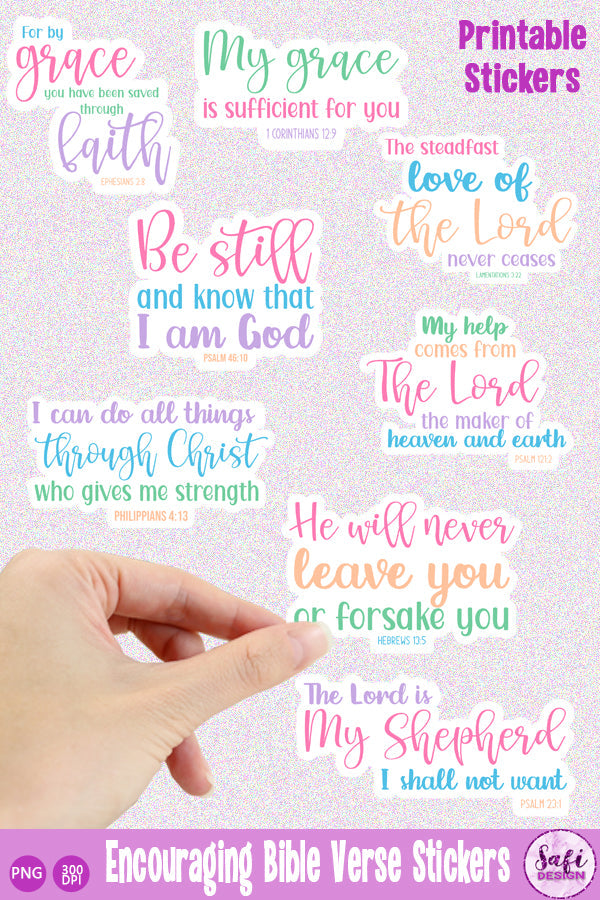 For by
grace
you have been saved
through
faith
EPHESIANS 2:8
My grace
is sufficient for you
1 CORINTHIANS 12:9
Printable
Stickers
The steadfast
love of
the Lord
never ceases
LAMENTATIONS 3:22
Be still
and know that
I am God
PSALM 46:10
My help
comes from
The Lord
the maker of
heaven and earth
PSALM 121:2
I can do all things
through Christ
who gives me strength
PHILIPPIANS 4:13
He will never
leave you
or forsake you
HEBREWS 13:5
The Lord is
My Shepherd
I shall not want
PSALM 23:1
PNG
300
DPI
Encouraging Bible Verse Stickers
Safi
DESIGN